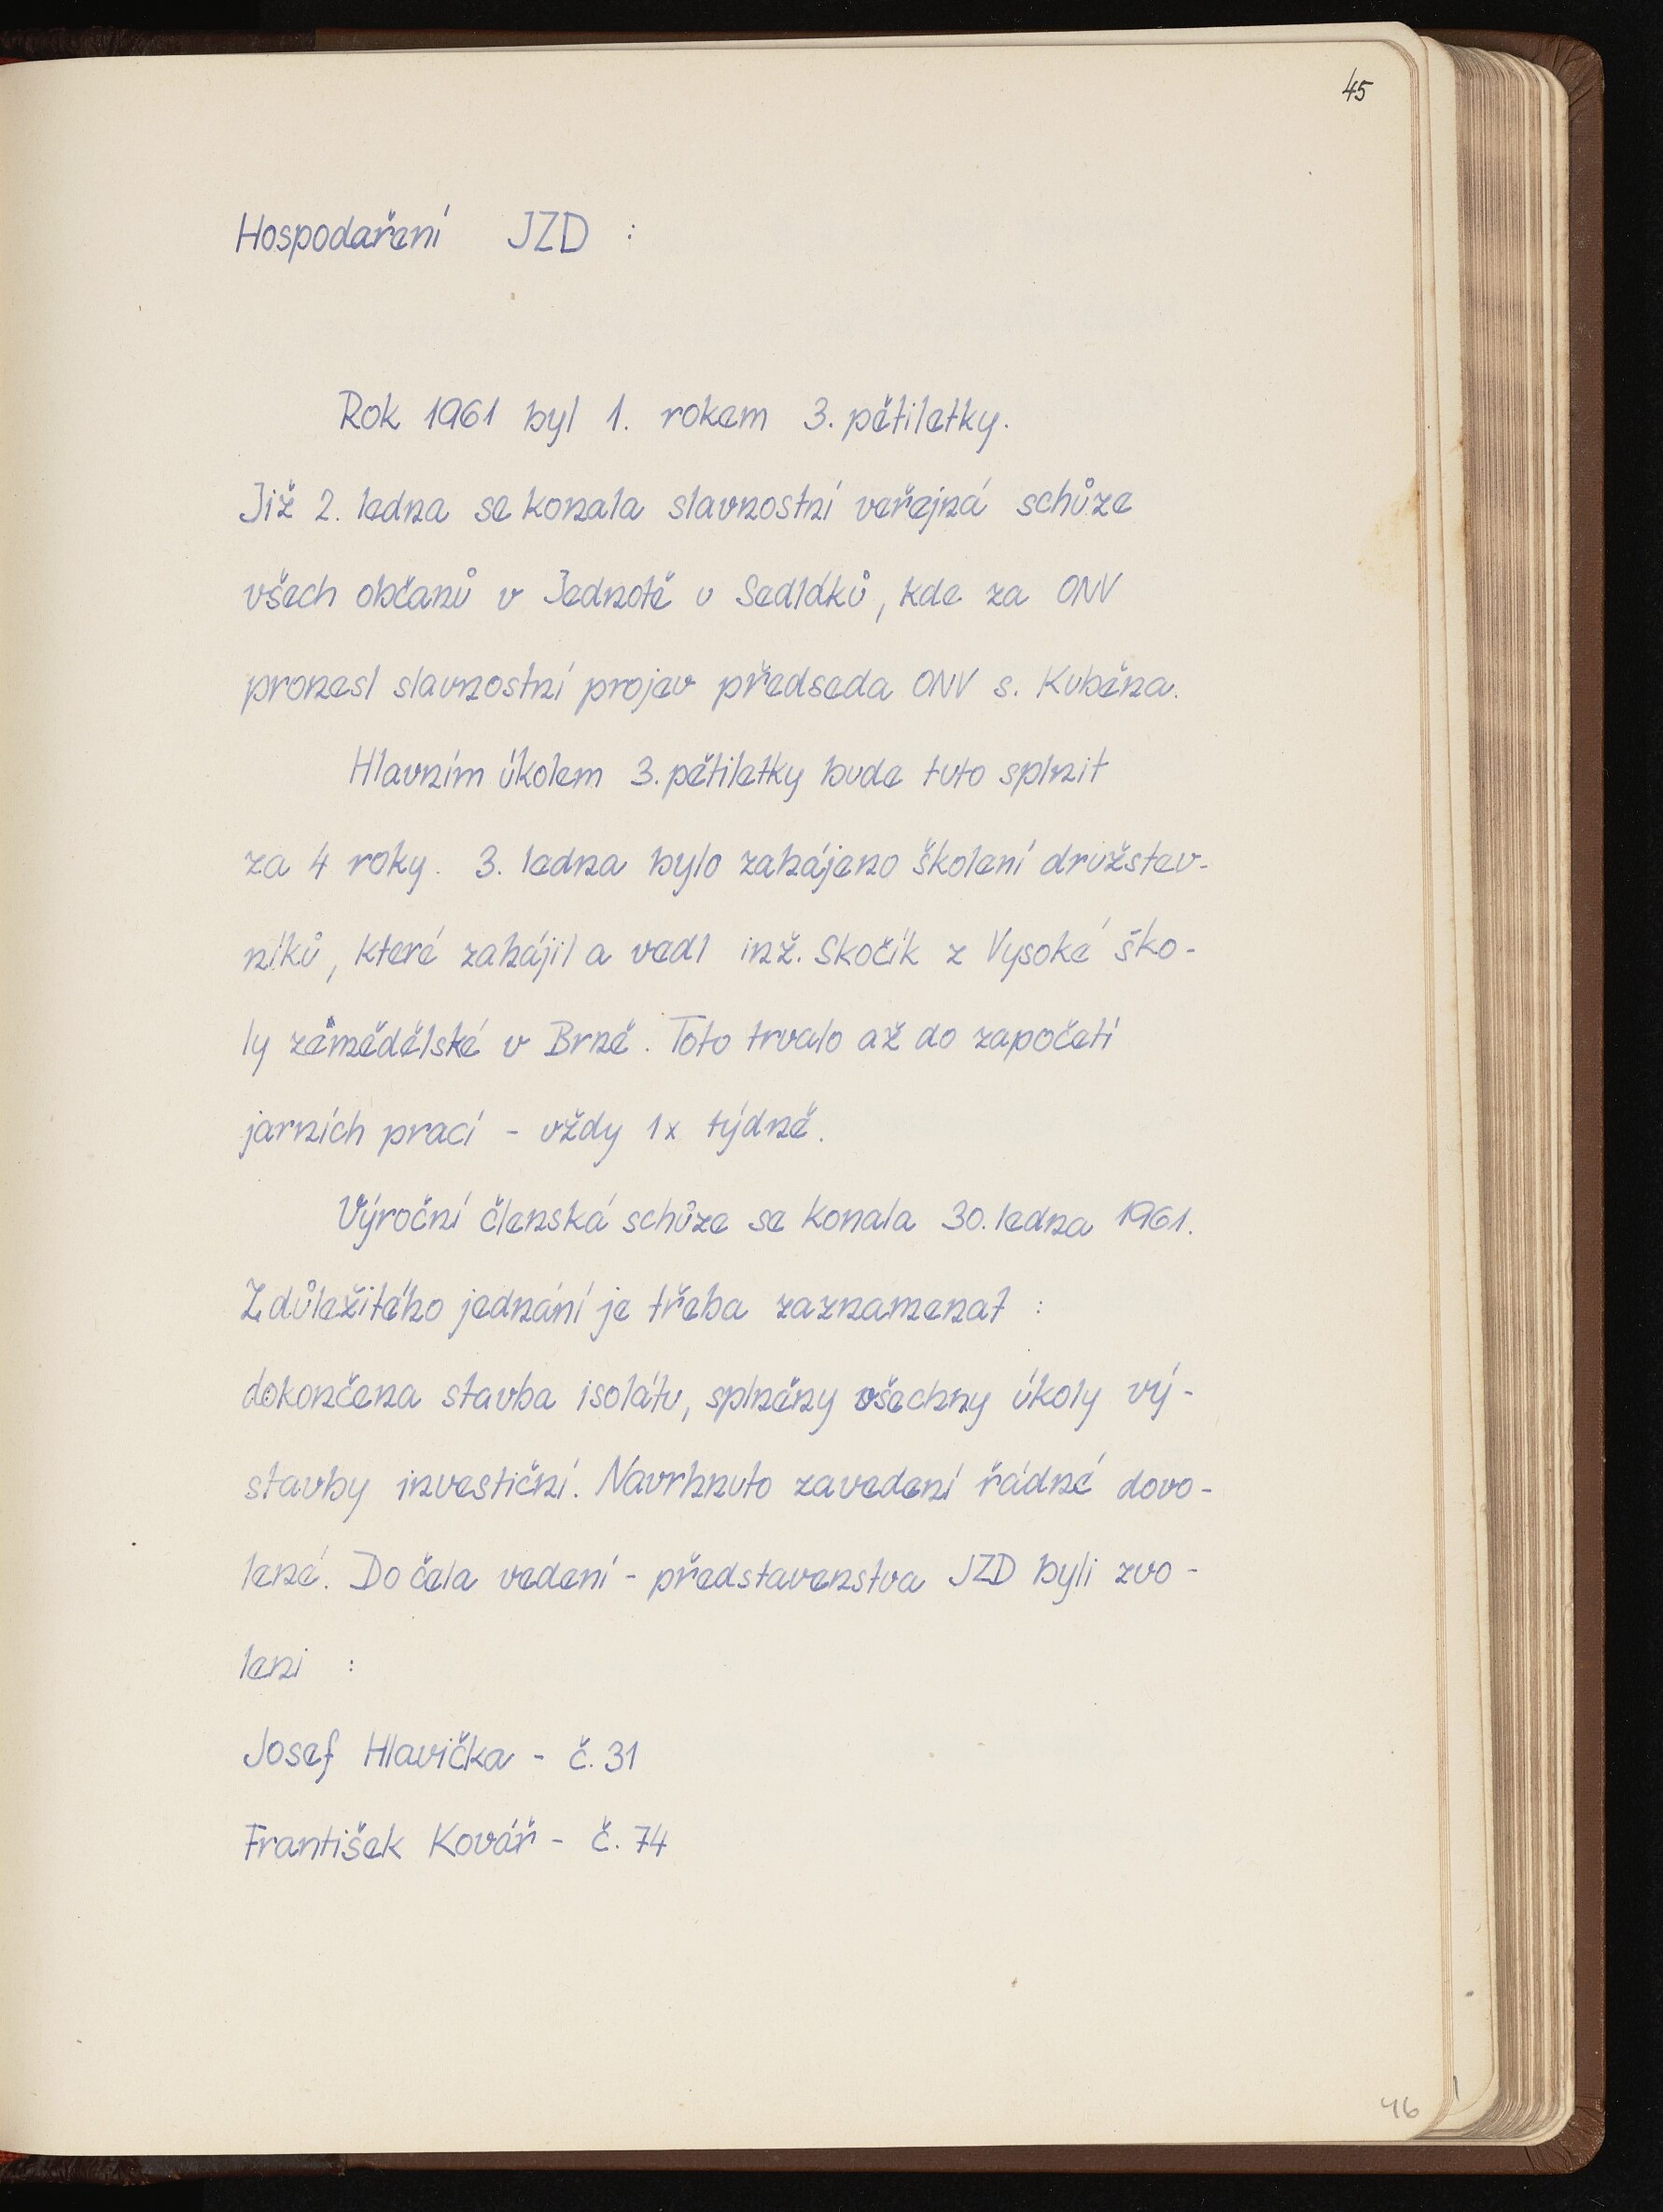 45
Hospodaření JZD :
Rok 1961 byl 1. rokem 3. pětiletky.
Již 2. ledna se konala slavnostní veřejná schůze
všech občanů v Jednotě u Sedláků, kde za ONV
pronesl slavnostní projev předseda ONV s. Kuběna.
Hlavním úkolem 3. pětiletky bude tuto splnit
za 4 roky. 3. ledna bylo zahájeno školení družstev-
níků, které zahájil a vedl inž. Skočík z Vysoké ško-
ly zemědělské v Brně. Toto trvalo až do započetí
jarních prací - vždy 1x týdně.
Výroční členská schůze se konala 30. ledna 1961.
Z důležitého jednání je třeba zaznamenat :
dokončena stavba isolátu, splněny všechny úkoly vý-
stavby investiční. Navrhnuto zavedení řádné dovo-
lené. Do čela vedení - představenstva JZD byli zvo-
leni :
Josef Hlavička - č. 31
František Kovář - č. 74
46